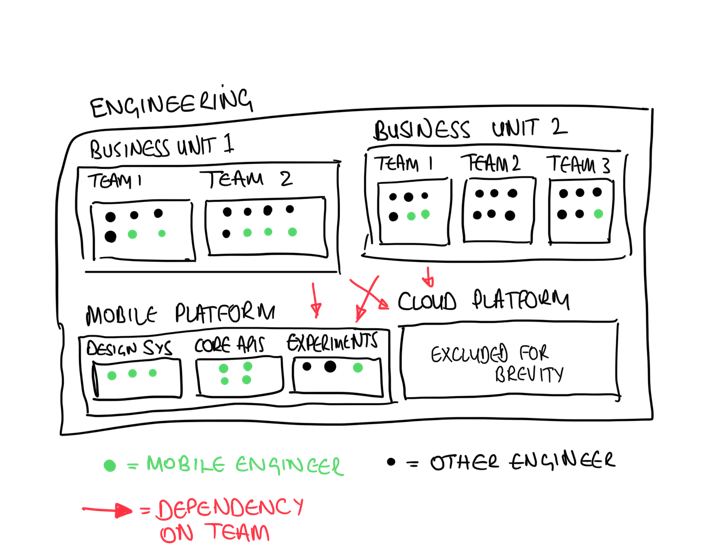 ENGINEERING
BUSINESS UNIT 1
TEAM 1
TEAM 2
BUSINESS UNIT 2
TEAM 1
TEAM 2
TEAM 3
MOBILE PLATFORM
DESIGN SYS
CORE APIS
EXPERIMENTS
CLOUD PLATFORM
EXCLUDED FOR
BREVITY
= MOBILE ENGINEER
= OTHER ENGINEER
= DEPENDENCY
ON TEAM